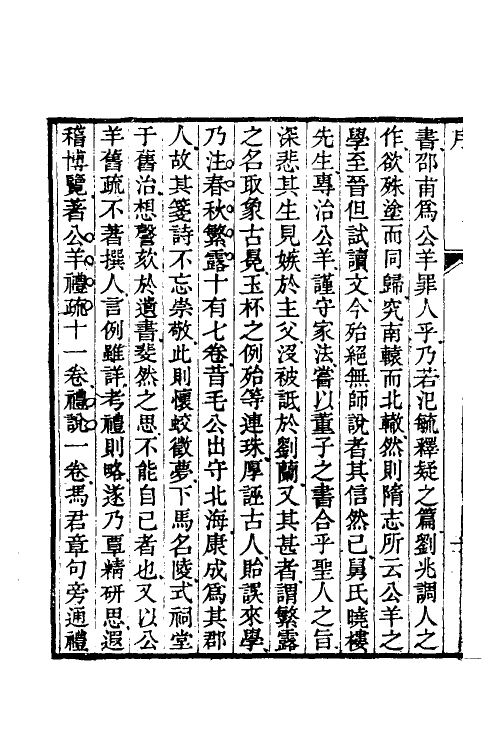 書邵甫爲公羊罪人乎乃若氾毓釋疑之篇劉兆調人之
作欲殊塗而同歸究南轅而北轍然則隋志所云公羊之
學至晉但試讀文今殆絕無師說者其信然已舅氏曉樓
先生專治公羊謹守家法嘗以董子之書合乎聖人之旨
深悲其生見嫉於主父沒被詆於劉蘭又其甚者謂繁露
之名取象古冕玉杯之例殆等連珠厚誣古人貽誤來學
乃注春秋繁露十有七卷昔毛公出守北海康成爲其郡
人故其箋詩不忘崇敬此則懷蛟徵夢下馬名陵式祠堂
于舊治想謦欬於遺書斐然之思不能自已者也又以公
羊舊疏不著撰人言例雖詳考禮則略遂乃覃精研思遐
稽博覽著公羊禮疏十一卷禮說一卷馬君章句旁通禮